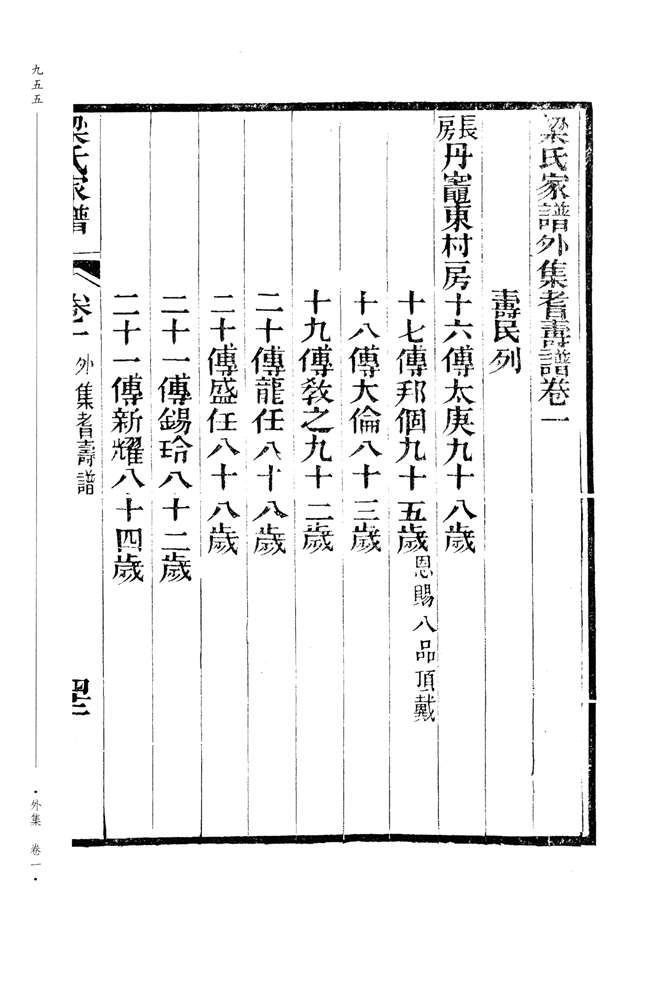 梁氏家譜外集耆壽譜卷一
壽民列
長房丹竈東村房十六傳太庚九十八歲
十七傳邦個九十五歲恩賜八品頂戴
十八傳大倫八十三歲
十九傳敎之九十二歲
二十傳龍任八十八歲
二十傳盛任八十八歲
二十一傳錫玲八十二歲
二十一傳新耀八十四歲
梁氏家譜 卷一 外集耆壽譜
九五五
·外集 卷一·